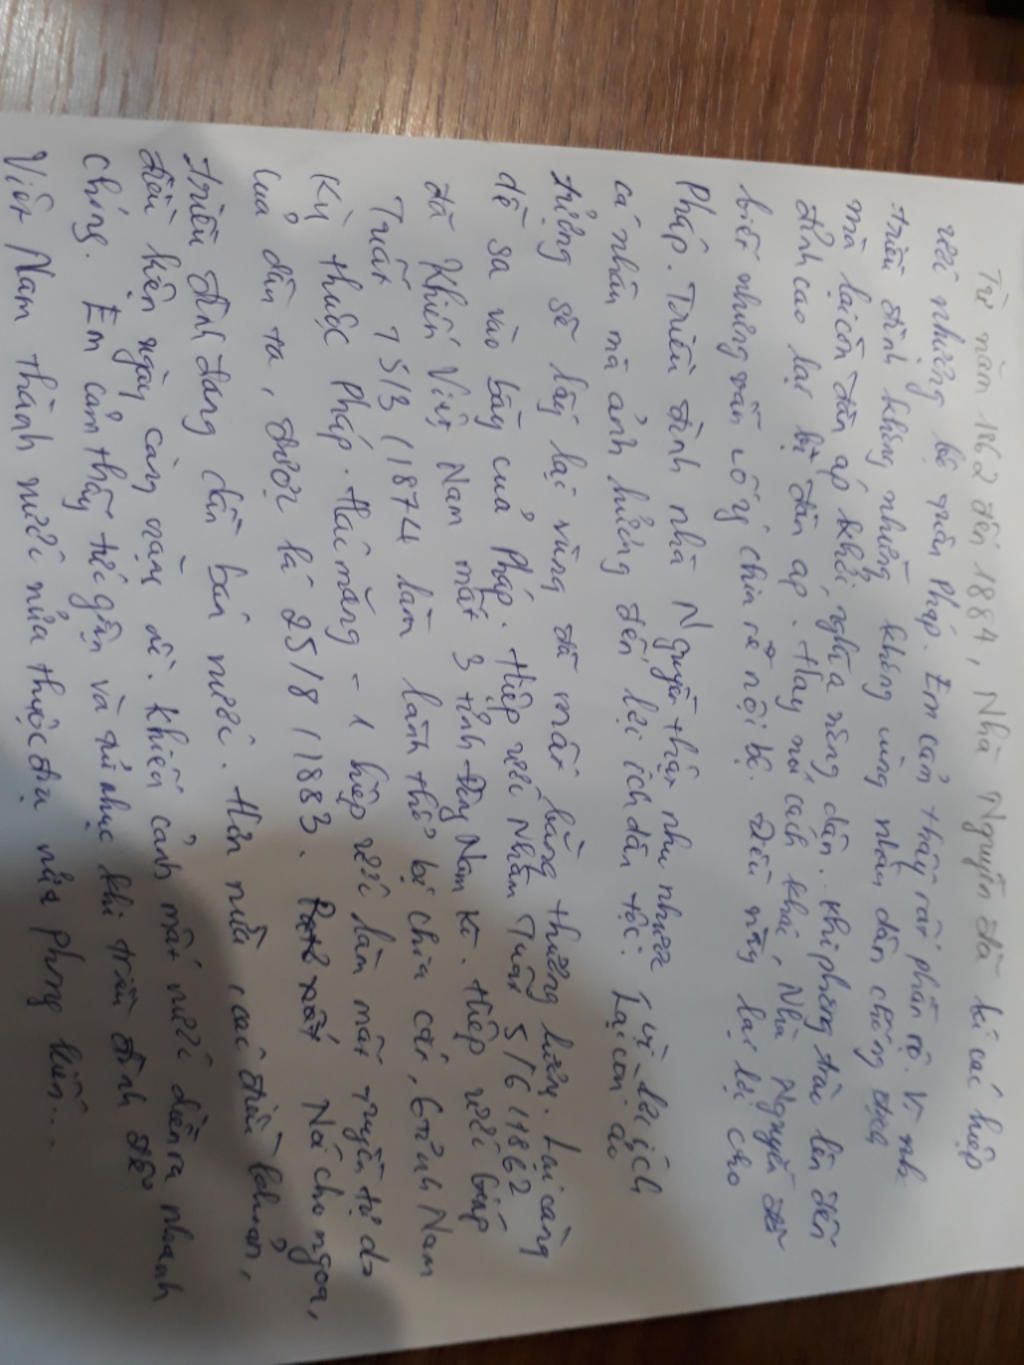 Từ năm 1862 đến 1884, Nhà Nguyễn đã kí các hiệp
ước nhượng bộ thần Pháp. Em cảm thấy rất phẫn nộ. Vì nhà
triều đình không những không cùng nhân dân chống địch
mà lại còn đàn áp khởi nghĩa nông dân.. khi phong trào lên đến
đỉnh cao lại bị đàn áp. Hay nói cách khác, Nhà Nguyễn đã
biến những vấn công chia rẽ nội bộ. Điều này lại lợi cho
Pháp. Triều đình nhà Nguyễn thật nhu nhược, vì lợi ích
cá nhân mà ảnh hưởng đến lợi ích dân tộc. Lại còn ảo
tưởng sẽ lấy lại vùng đã mất bằng thương lượng. Lại càng
dễ sa vào bẫy của Pháp. Hiệp ước Nhâm Tuất 5/6/1862
đã khiến Việt Nam mất 3 tỉnh Đông Nam Kì. Hiệp ước Giáp
Tuất 15/3/1874 làm lãnh thổ bị chia cắt, 6 tỉnh Nam
Kỳ thuộc Pháp. Hác măng - 1 hiệp ước làm mất quyền tự do
của dân ta, được kí 25/8/1883. Nó cho ngoa,
triều đình đang dần bán nước. Hơn nữa, các điều khoản,
điều kiện ngày càng nặng nề. khiến cảnh mất nước diễn ra nhanh
chóng. Em cảm thấy tức giận và tủi nhục khi triều đình để
Việt Nam thành nước nửa thuộc địa nửa phong kiến...